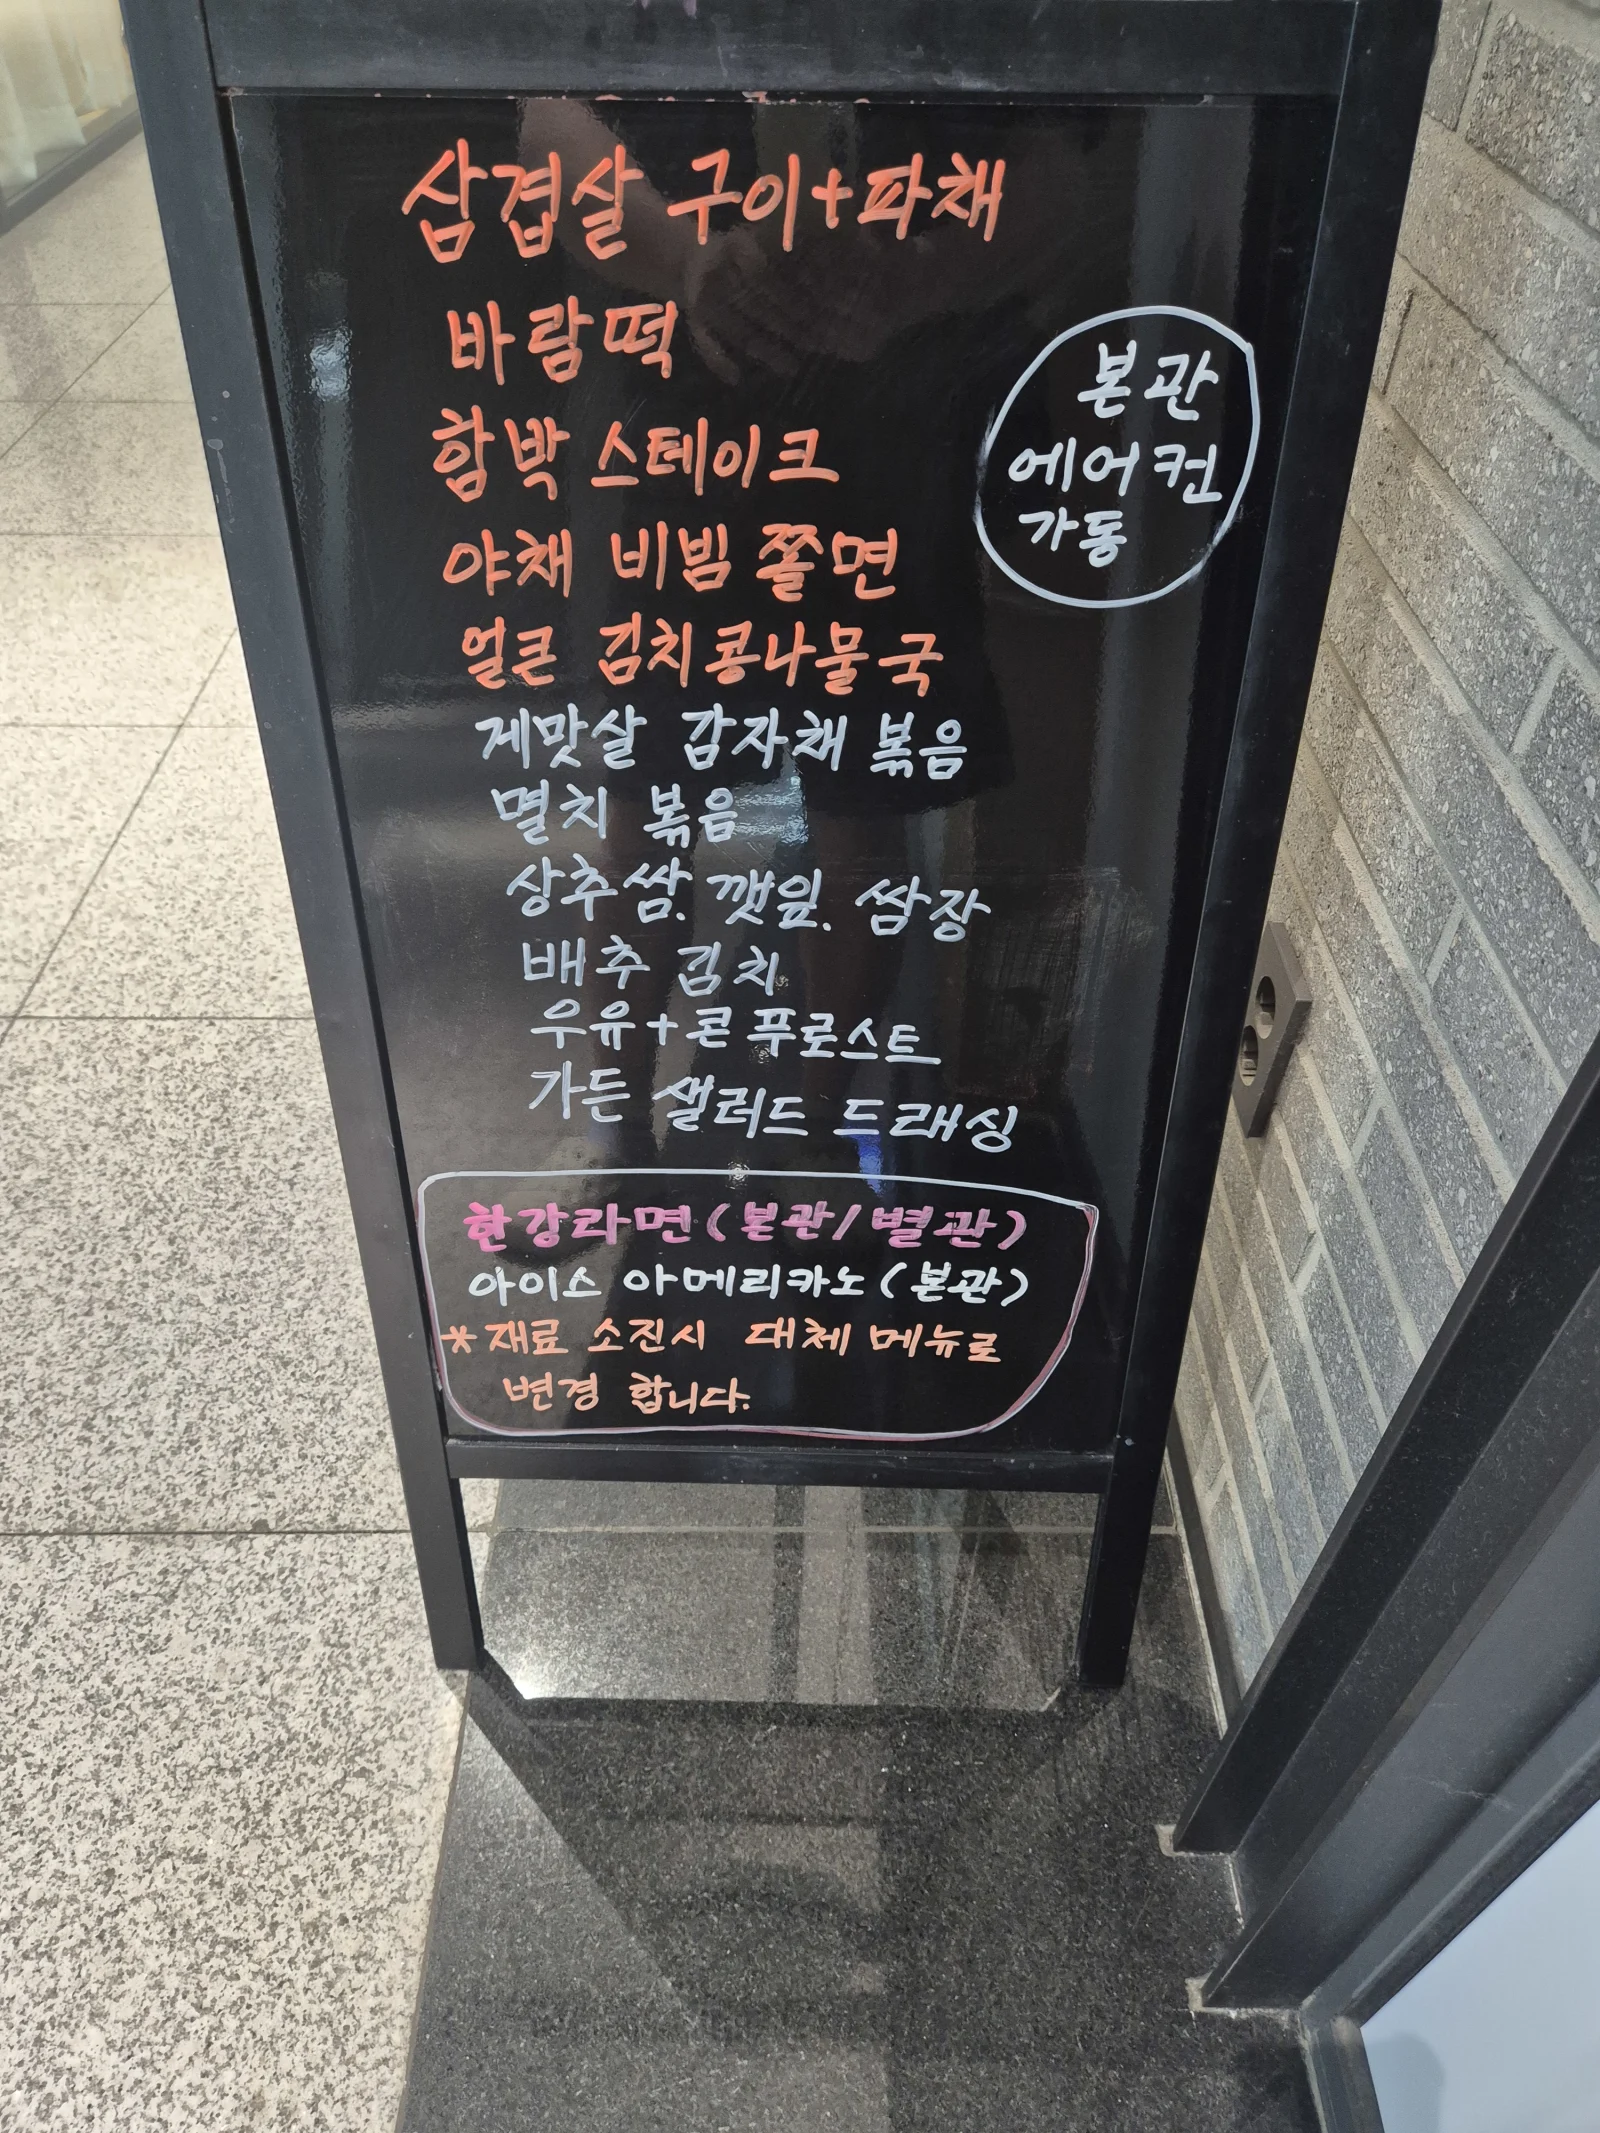 삼겹살 구이+파채
바람떡
함박 스테이크
야채 비빔 쫄면
얼큰 김치콩나물국
게맛살 감자채 볶음
멸치 볶음
상추쌈. 깻잎. 쌈장
배추 김치
우유+콘푸로스트
가든 샐러드 드래싱
본관
에어컨
가동
한강라면(본관/별관)
아이스 아메리카노(본관)
*재료 소진시 대체 메뉴로
변경 합니다.